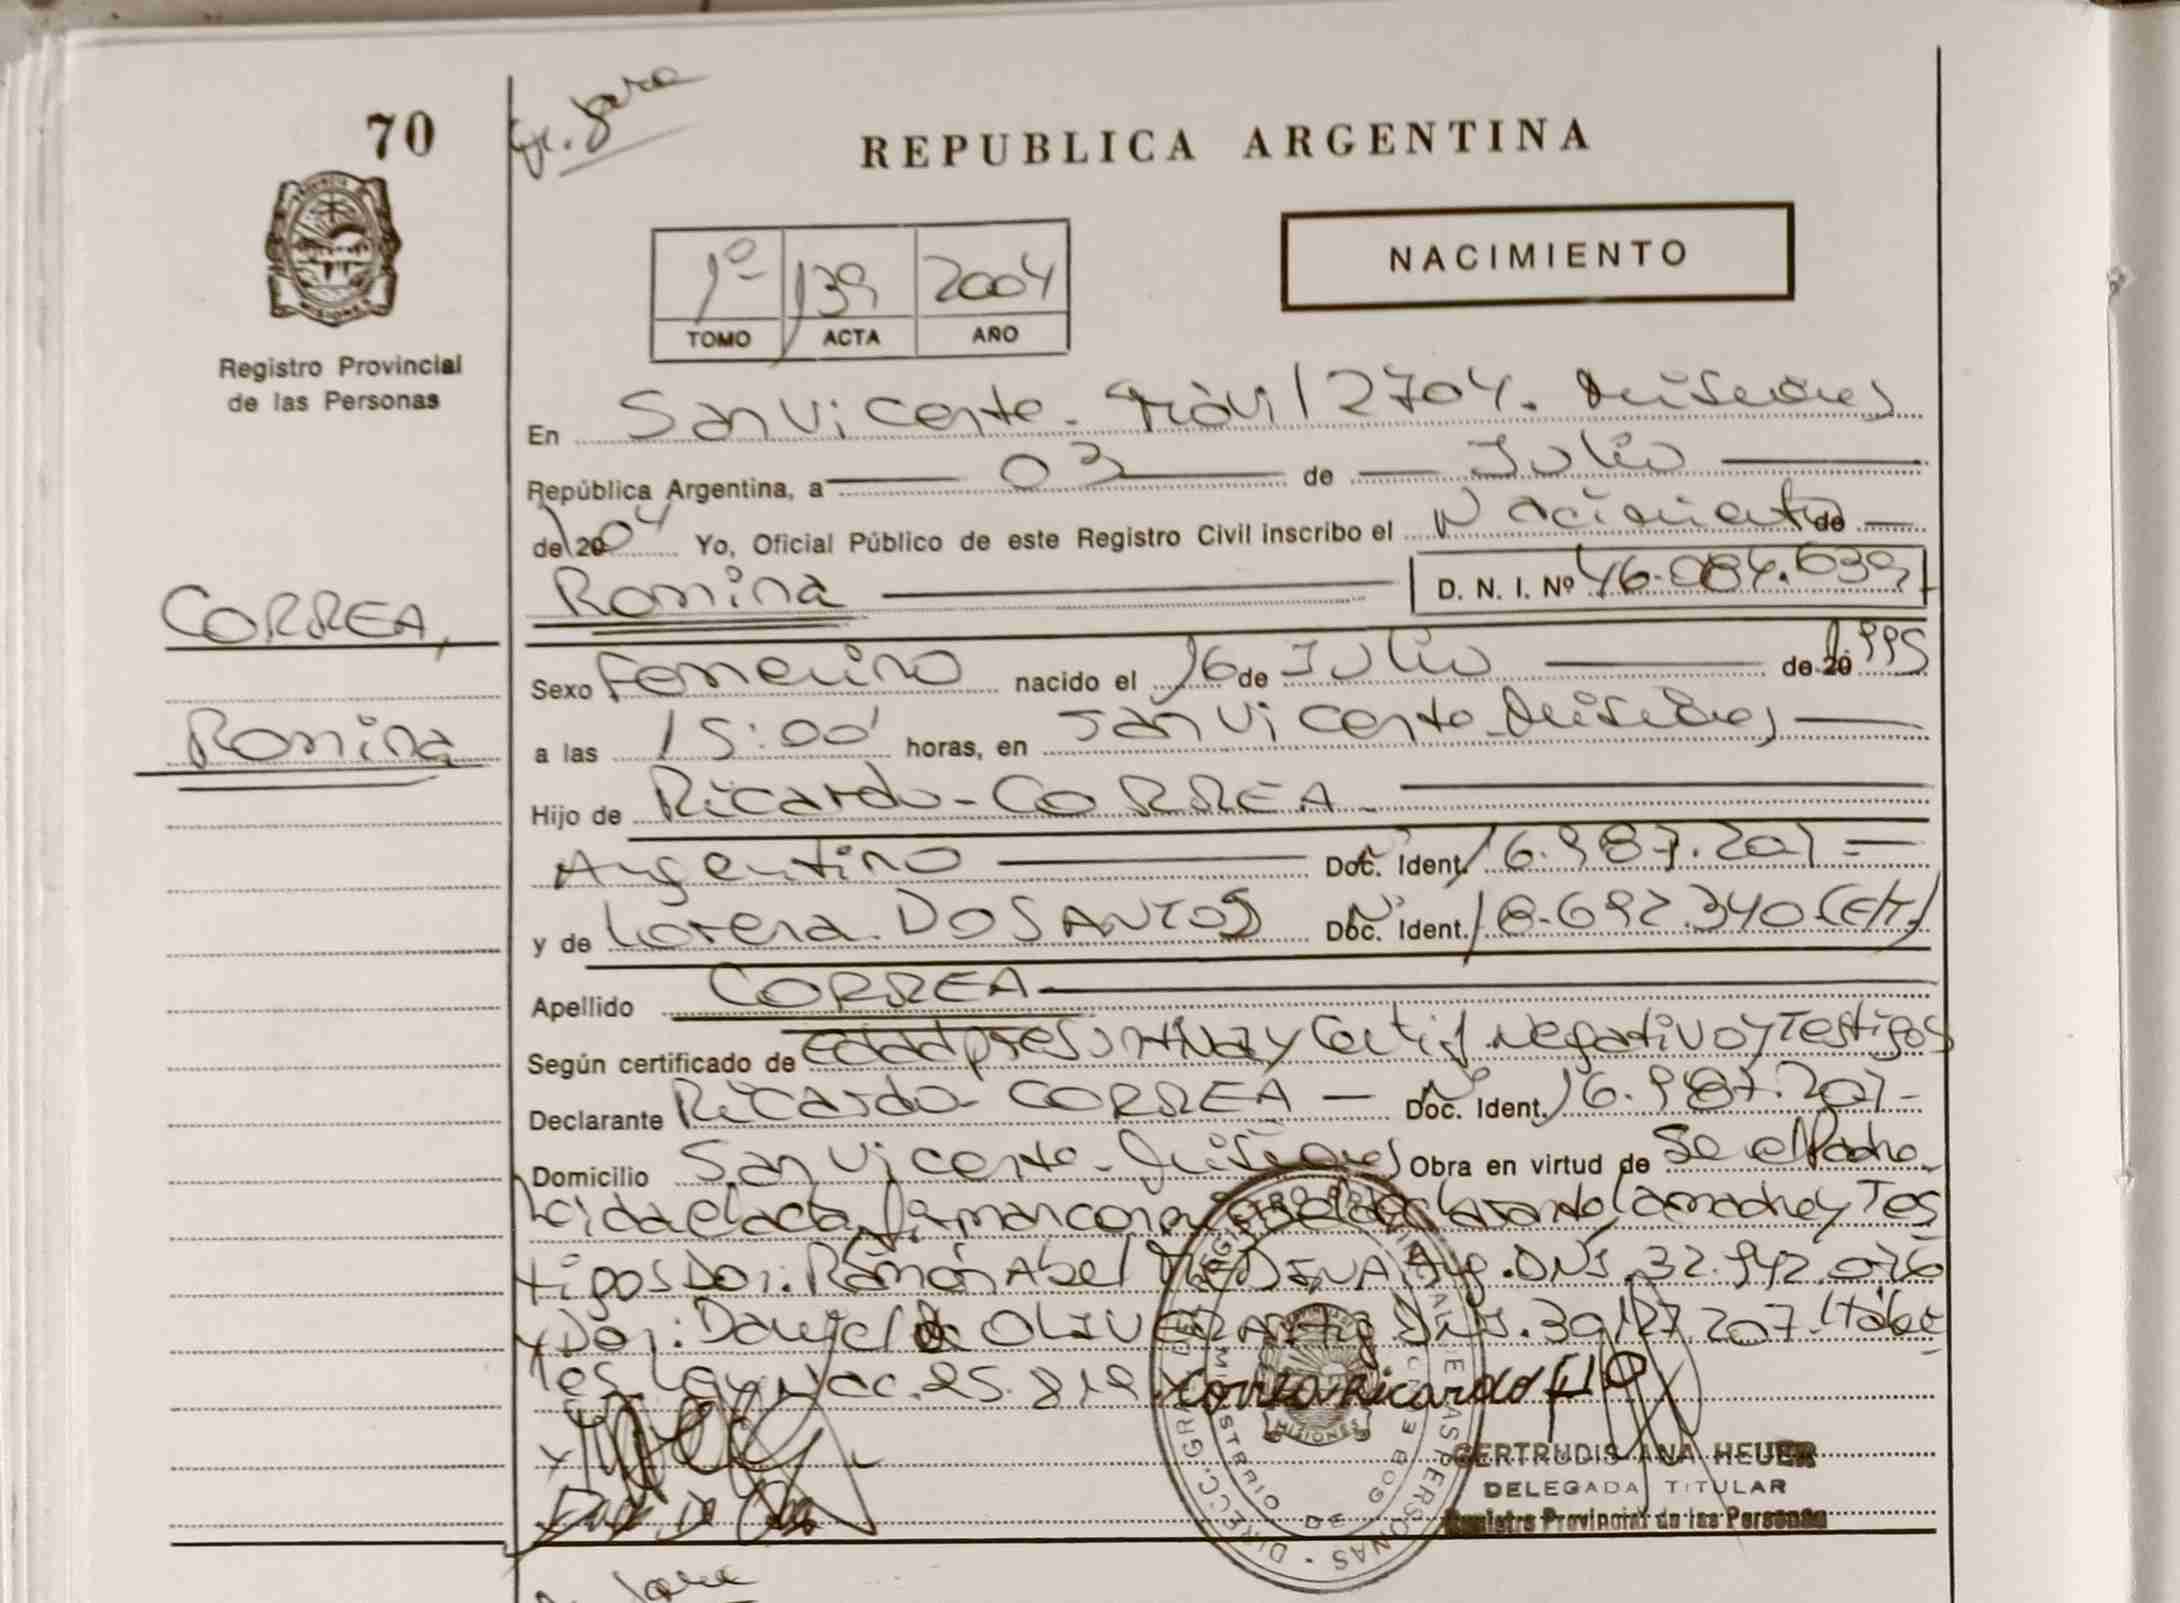 70
REPUBLICA ARGENTINA
NACIMIENTO
1º 139 2004
TOMO ACTA AÑO
Registro Provincial
de las Personas
En San Vicente - Móvil 2704. Misiones
República Argentina, a 03 de Julio
de 2004 Yo, Oficial Público de este Registro Civil inscribo el Nacimiento de
Romina D. N. I. Nº 46.084.639
CORREA,
Romina
Sexo Femenino nacido el 16 de Julio de 20 1995
a las 15:00 horas, en San Vicente Misiones
Hijo de Ricardo - CORREA
Argentino Doc. Ident. 16.987.207
y de Lorena DOSANTOS Doc. Ident. 18.692.340 (EH)
Apellido CORREA
Según certificado de edad presuntiva y Certif. Negativo y Testigos
Declarante Ricardo - CORREA Doc. Ident. 16.987.207
Domicilio San Vicente - Misiones Obra en virtud de Se el Padre
Leida el acta firman la madre y Tes
tigos Don: Ramón Abel MEDINA Arg. DNI. 32.942.076
y Don: Daniel De OLIVERA Arg DNI. 39.127.207
Ley Nac. 25.819
Correa Ricardo
GERTRUDIS ANA HEUER
DELEGADA TITULAR
Registro Provincial de las Personas
MISIONES